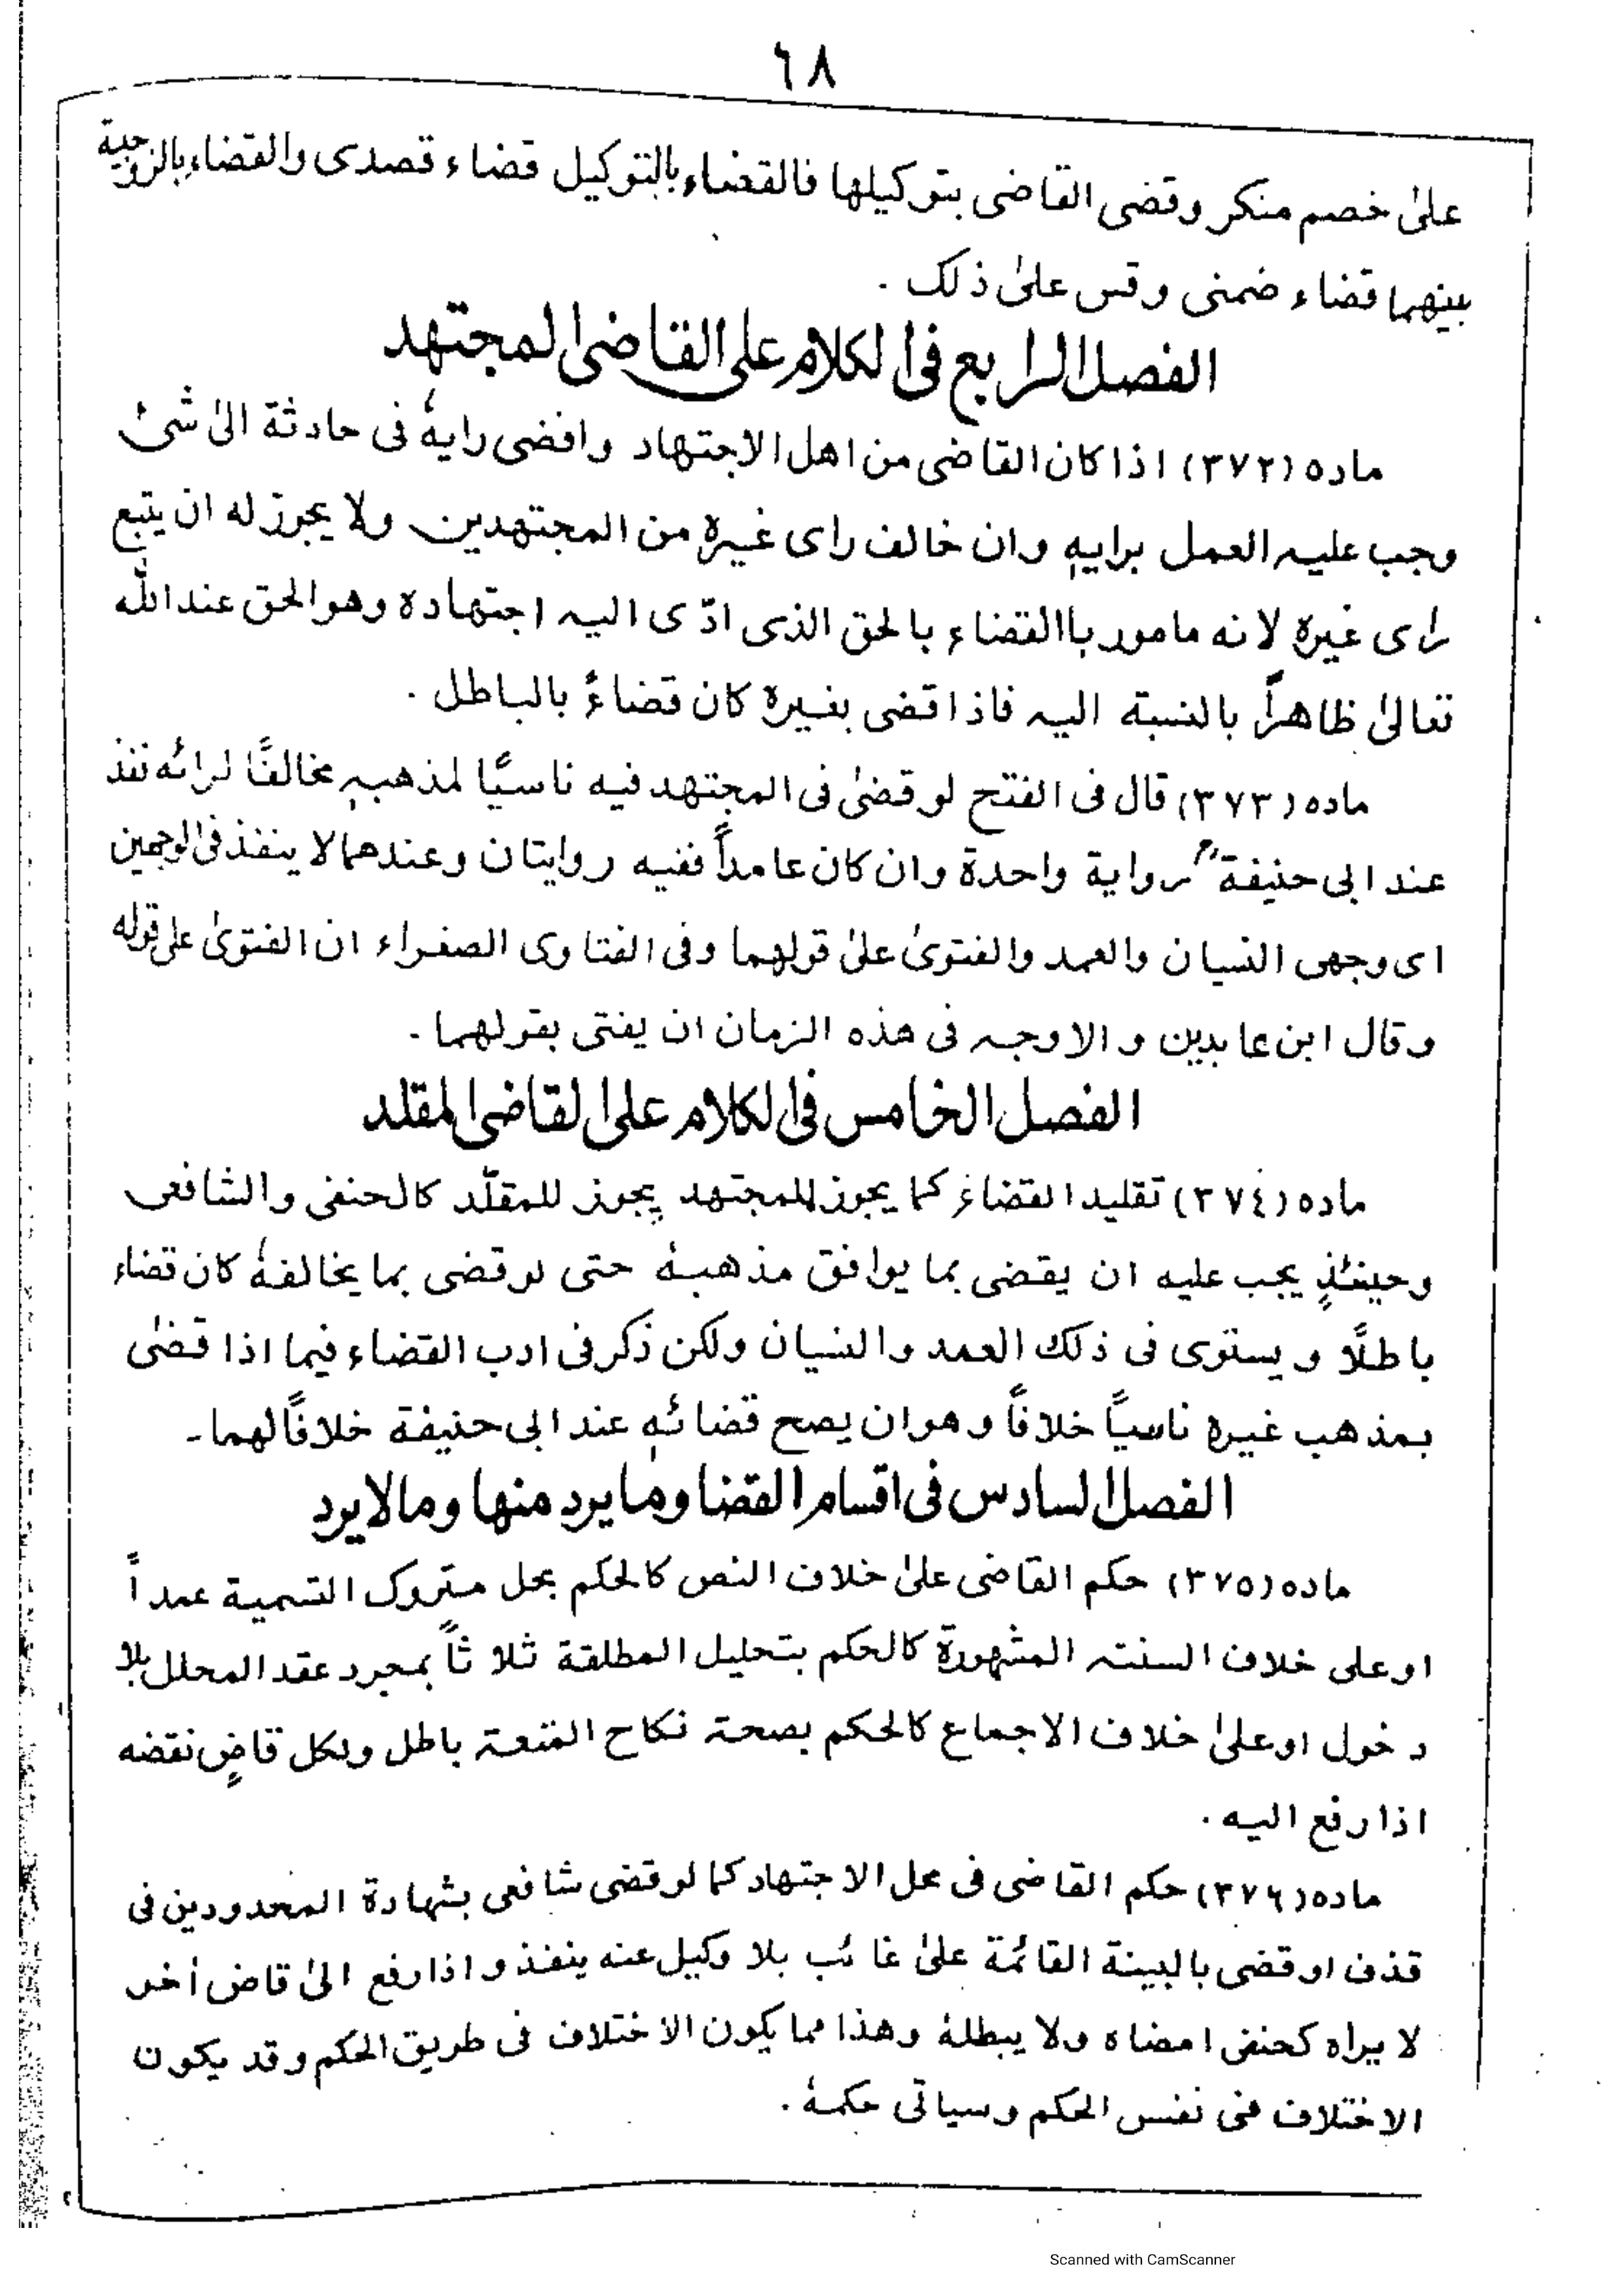 ٦٨
علىٰ خصم منكر وقضى القاضى بتوكيلها فالقضاء بالتوكيل قضاء قصدى والقضاء بالزوجية
بينهما قضاء ضمنى وقس علىٰ ذلك ۔
الفصل الرابع فى الكلام على القاضى المجتهد
ماده (٣٧٢) اذا كان القاضى من اهل الاجتهاد وافضى رايهٗ فى حادثة الىٰ شئ
وجب عليه العمل برايهٖ وان خالف راى غيره من المجتهدين ولا يجوز له ان يتبع
راى غيره لانه مامور باالقضاء بالحق الذى ادّى اليه اجتهاده وهو الحق عند الله
تعالىٰ ظاهراً بالنسبة اليه فاذا قضى بغيره كان قضاءً بالباطل ۔
ماده (٣٧٣) قال فى الفتح لو قضىٰ فى المجتهد فيه ناسيًا لمذهبهٖ مخالفًا لرائه نفذ
عند ابى حنيفةؒ رواية واحدة وان كان عامداً ففيه روايتان وعندهما لا ينفذ فى الوجهين
اى وجهى النسيان والعمد والفتوىٰ علىٰ قولهما وفى الفتاوى الصغراء ان الفتوىٰ على قوله
وقال ابن عابدين والاوجه فى هذه الزمان ان يفتى بقولهما ۔
الفصل الخامس فى الكلام على القاضى المقلد
ماده (٣٧٤) تقليد القضاء كما يجوز للمجتهد يجوز للمقلّد كالحنفى والشافعى
وحينئذٍ يجب عليه ان يقضى بما يوافق مذهبهٗ حتى لو قضى بما يخالفهٗ كان قضاء
باطلًا ويستوى فى ذلك العمد والنسيان ولكن ذكر فى ادب القضاء فيما اذا قضىٰ
بمذهب غيره ناسياً خلافاً وهو ان يصح قضائهٖ عند ابى حنيفة خلافًا لهما ۔
الفصل السادس فى اقسام القضا وما يرد منها وما لا يرد
ماده (٣٧٥) حكم القاضى علىٰ خلاف النص كالحكم بحل متروك التسمية عمداً
او على خلاف السنته المشهورة كالحكم بتحليل المطلقة ثلاثاً بمجرد عقد المحلل بلا
دخول او علىٰ خلاف الاجماع كالحكم بصحة نكاح المتعة باطل ولكل قاضٍ نقضه
اذا رفع اليه ۔
ماده (٣٧٦) حكم القاضى فى محل الاجتهاد كما لو قضى شافعى بشهادة المحدودين فى
قذف او قضى بالبينة القائمة علىٰ غائب بلا وكيل عنه ينفذ واذا رفع الىٰ قاض أخر
لا يراه كحنفى امضاه ولا يبطلهٗ وهذا مما يكون الاختلاف فى طريق الحكم وقد يكون
الاختلاف فى نفس الحكم وسياتى حكمهٗ ۔
Scanned with CamScanner